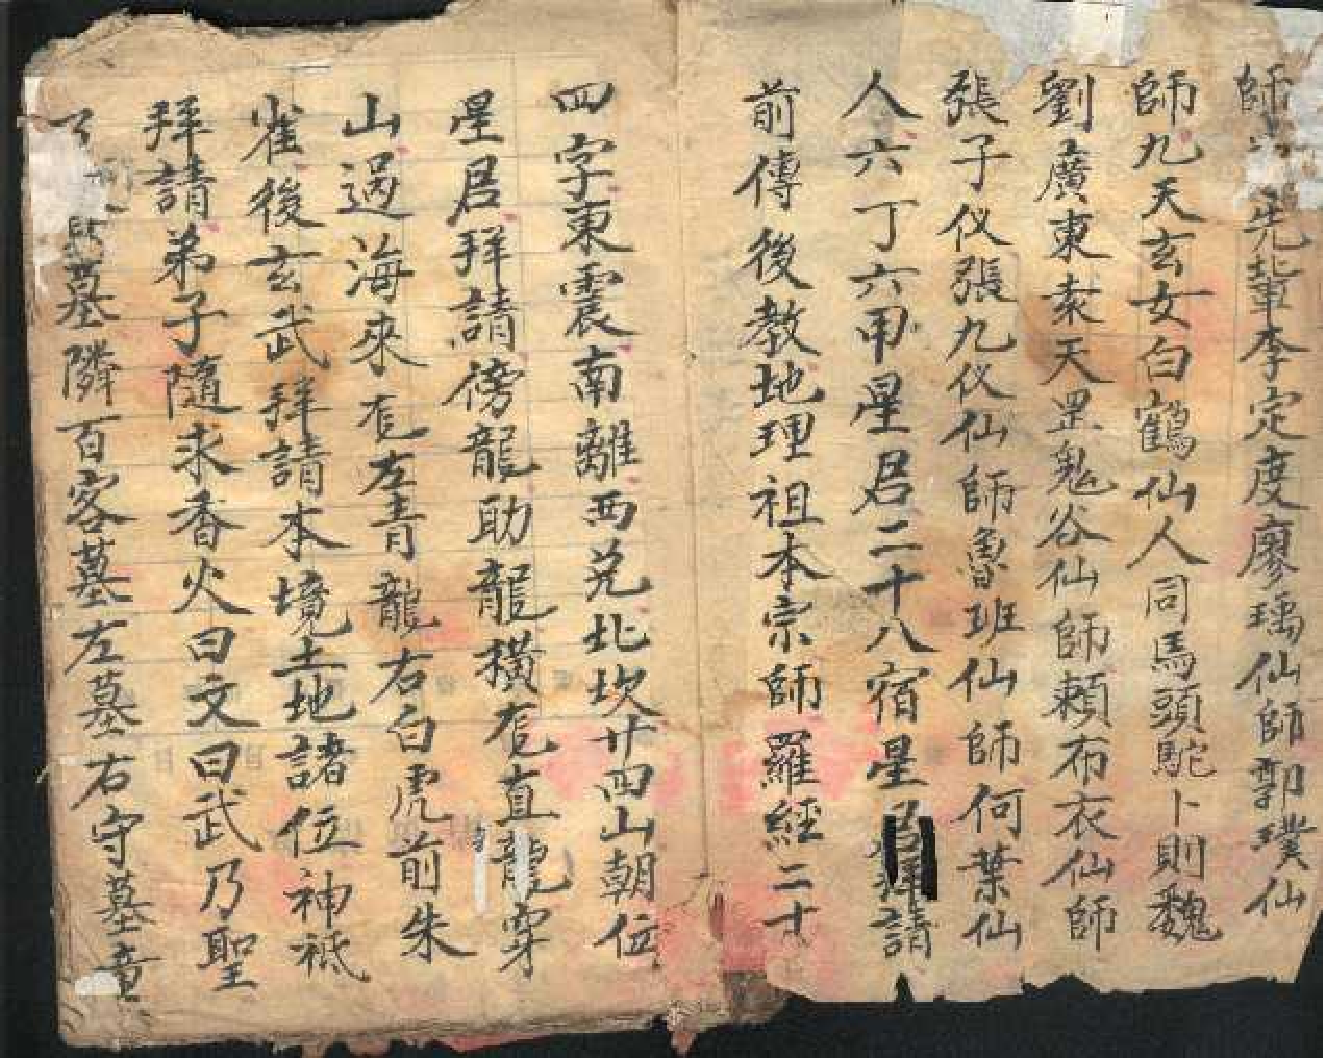 師 先輩李定度廖瑀仙師郭璞仙
師九天玄女白鶴仙人同馬頭駝卜則魏
劉廣東袁天罡鬼谷仙師賴布衣仙師
張子仪張九仪仙師魯班仙師何葉仙
人六丁六甲星君二十八宿星君拜請
前傳後教地理祖本宗師羅經二十
四字東震南離西兑北坎廿四山朝位
星君拜請傍龍助龍橫龍直龍穿
山過海來龍左青龍右白虎前朱
雀後玄武拜請本境土地諸位神祗
拜請弟子隨求香火曰文曰武乃聖
墓隣百客墓左墓右守墓童